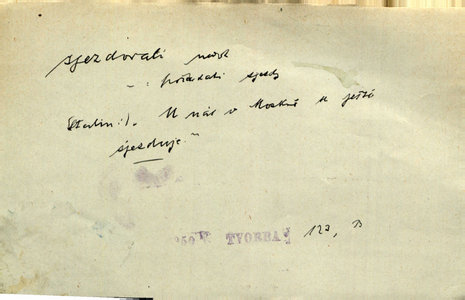 sjezdovati nedok
„: pořádati sjezdy
(Stalin:). U nás v Moskvě se ještě
sjezduje."
TVORBA 123, B